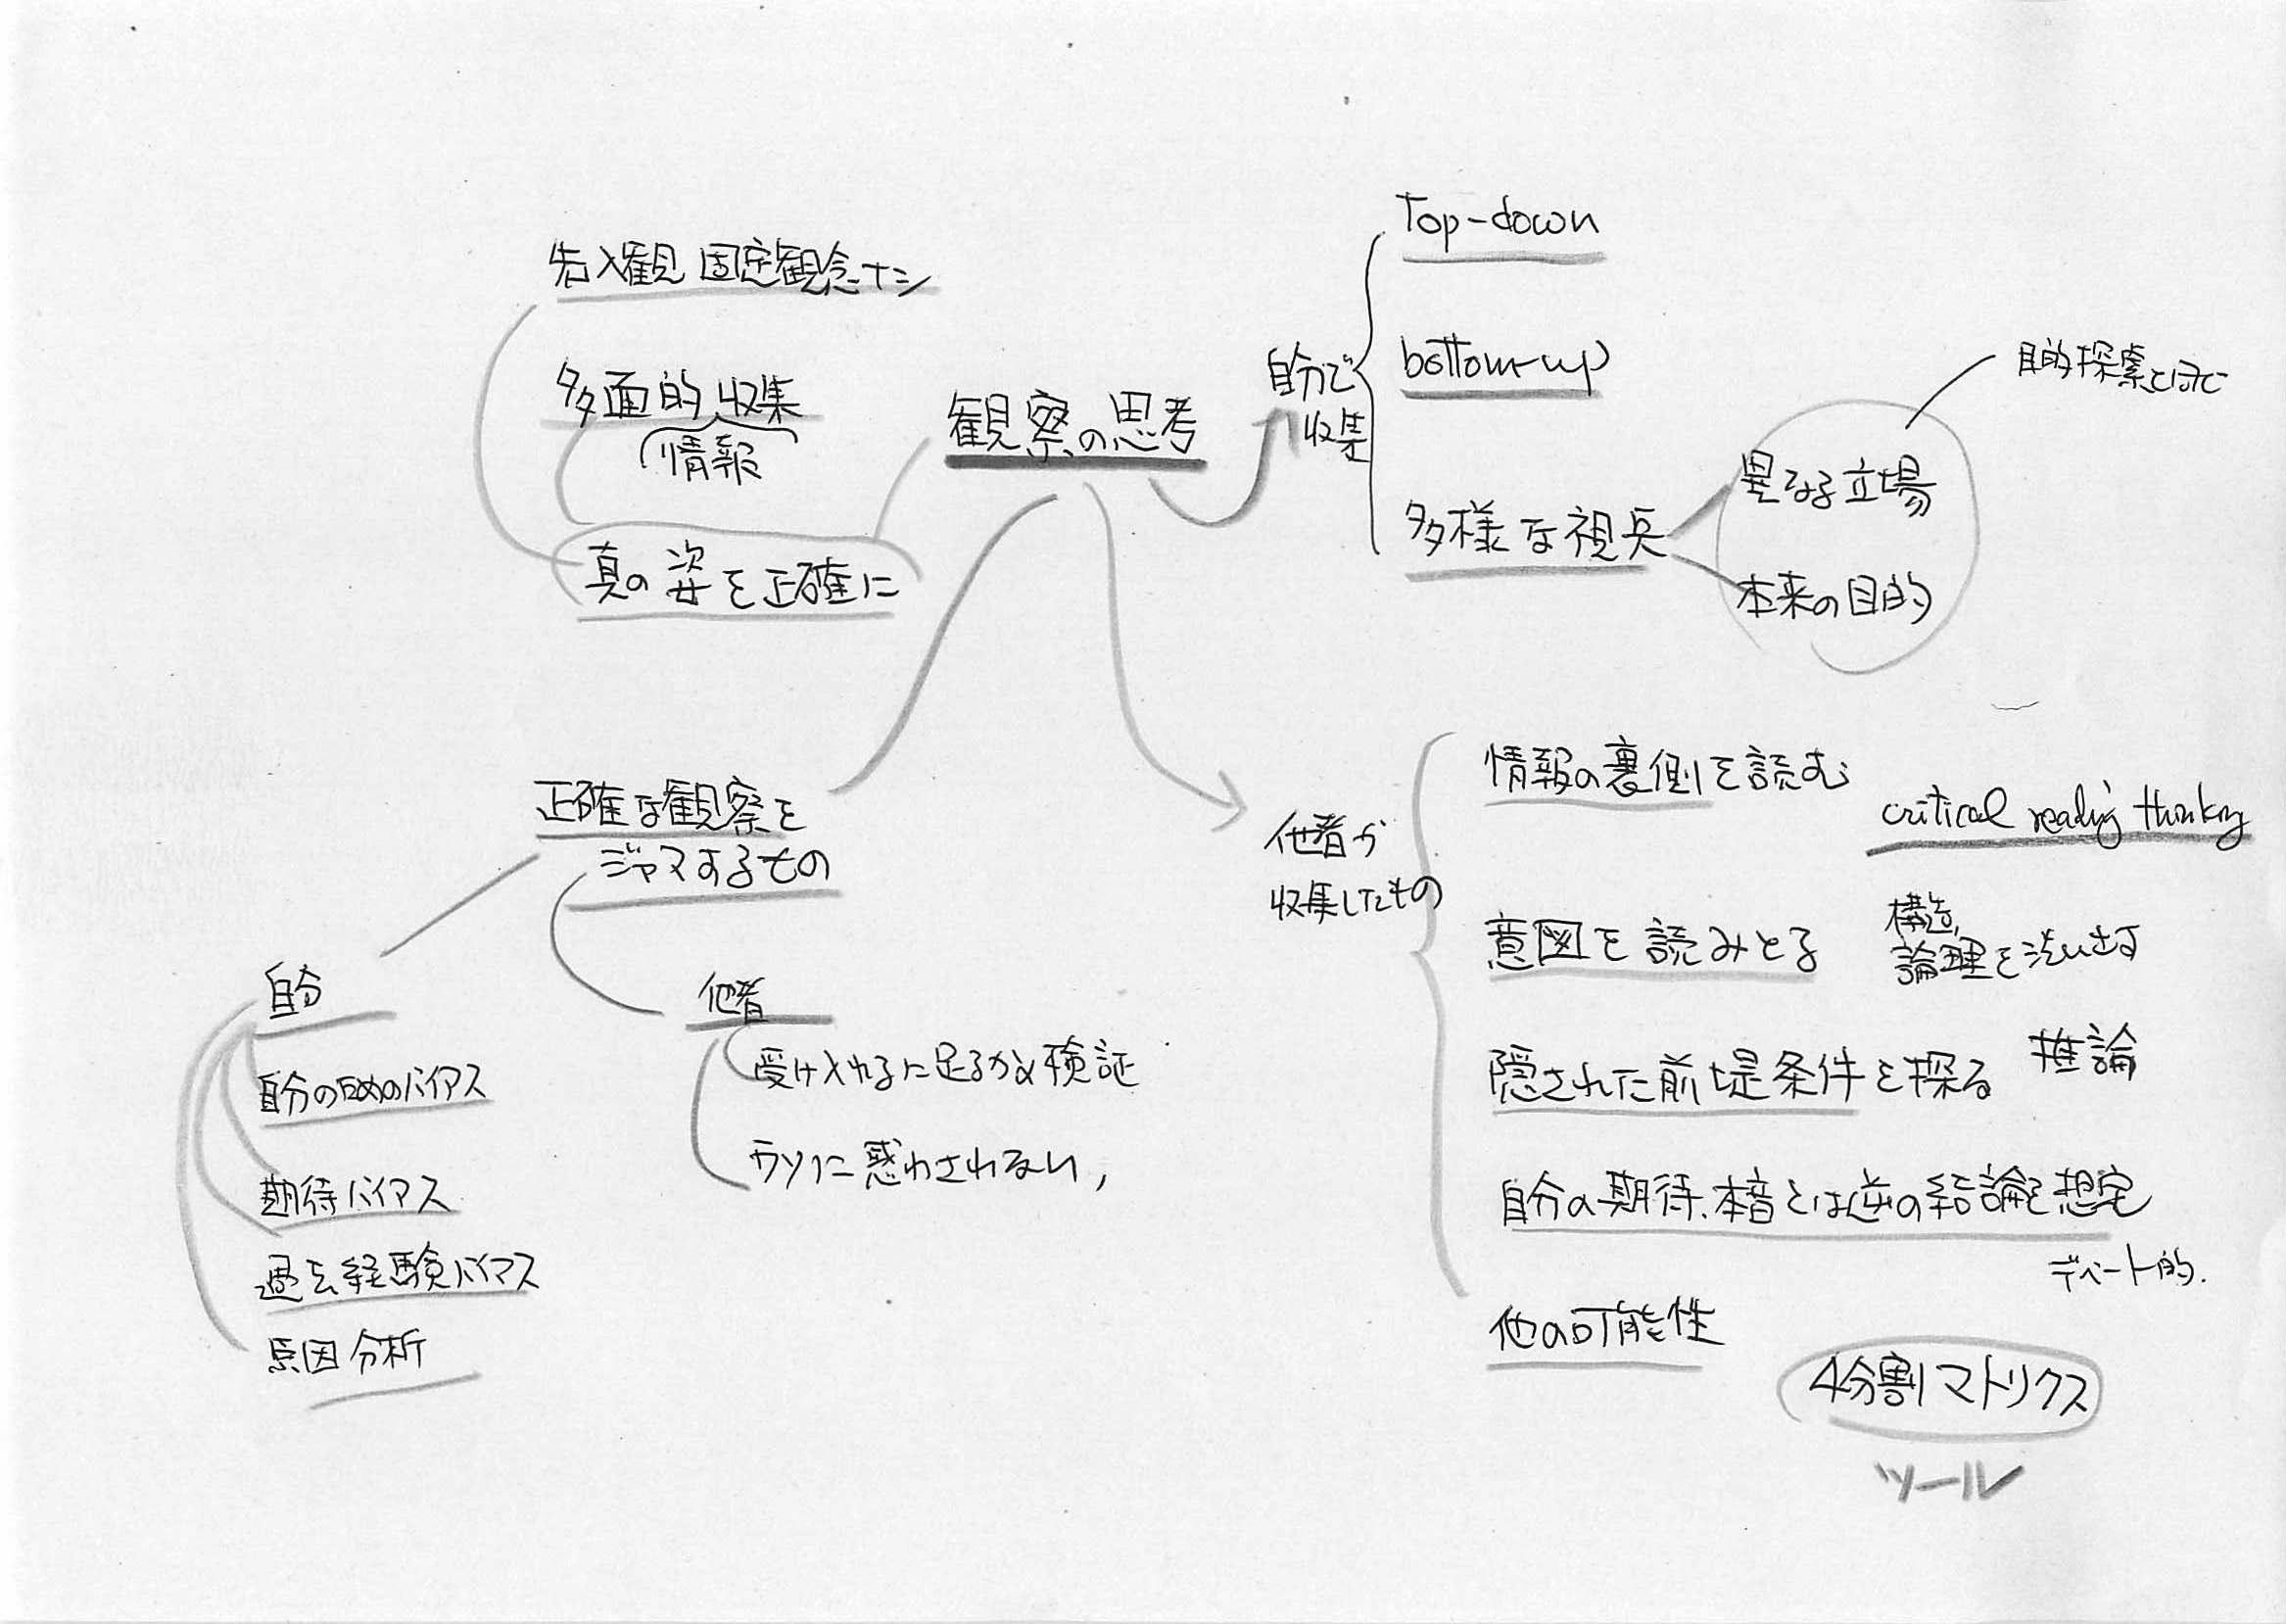 先入観 固定観念ナシ
多面的収集
情報
真の姿を正確に
観察の思考
自分で
収集
Top-down
bottom-up
多様な視点
異なる立場
本来の目的
目的探索
正確な観察を
ジャマするもの
自分
自分のためのバイアス
期待バイアス
過去経験バイアス
原因分析
他者
受け入れるに足るか検証
ウソに惑わされない,
他者が
収集したもの
情報の裏側を読む
critical reading thinking
意図を読みとる
構造,
論理を洗い出す
隠された前提条件を探る
推論
自分の期待、本音とは逆の結論を想定
デベート的.
他の可能性
4分割マトリクス
ツール